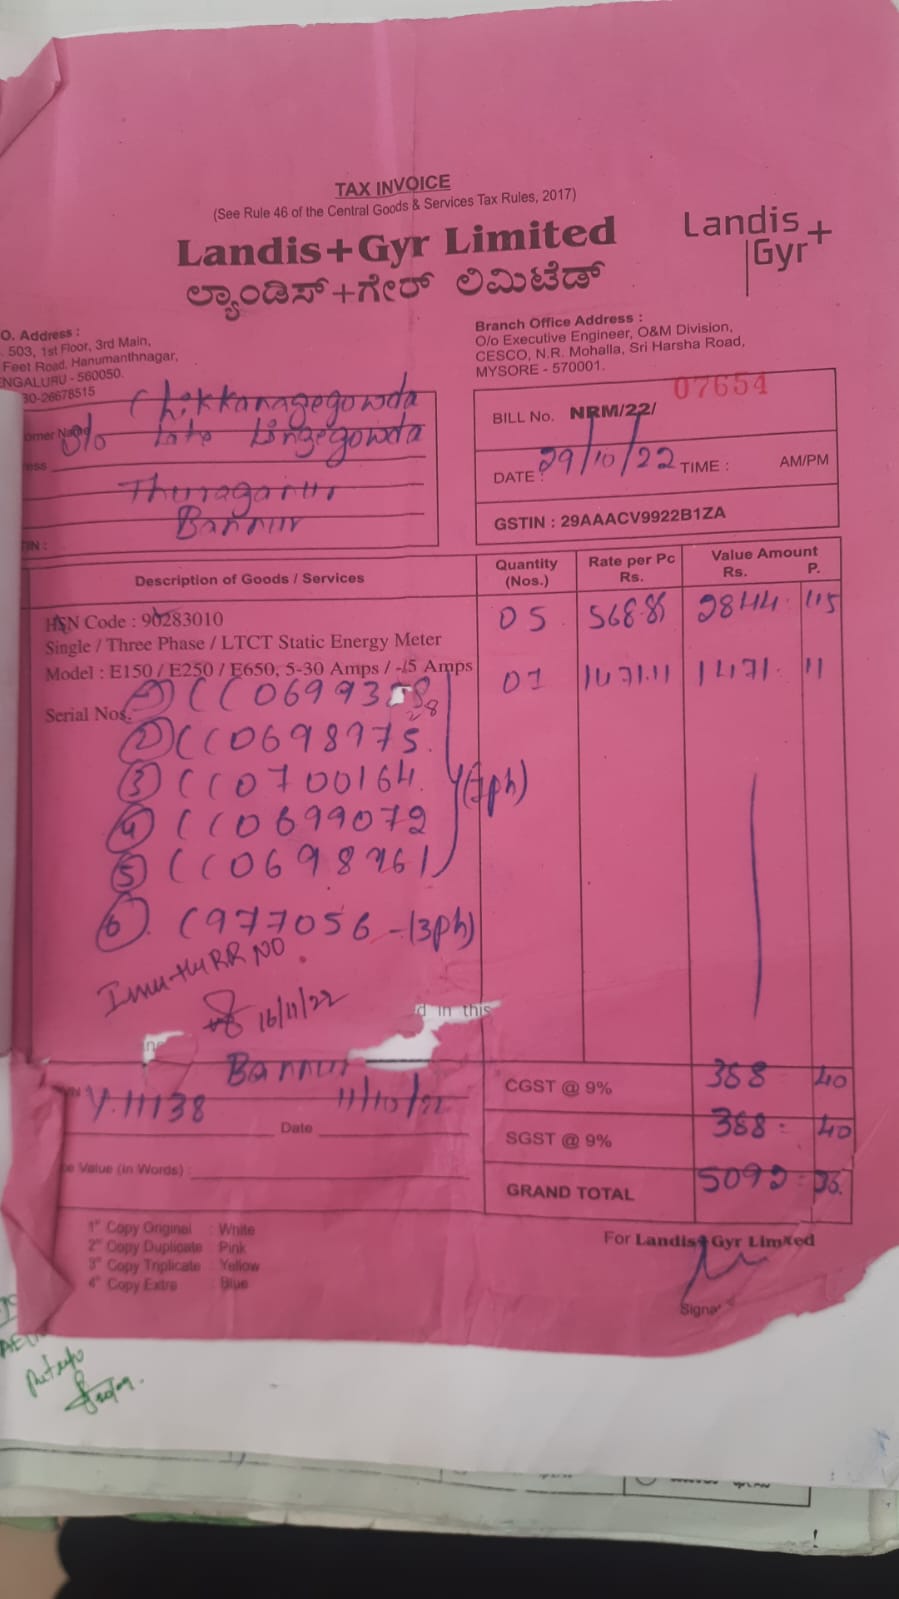 TAX INVOICE
(See Rule 46 of the Central Goods & Services Tax Rules, 2017)
Landis+Gyr Limited
ಲ್ಯಾಂಡಿಸ್+ಗೇರ್ ಲಿಮಿಟೆಡ್
Landis
Gyr+
O. Address :
503, 1st Floor, 3rd Main,
Feet Road, Hanumanthnagar,
ENGALURU - 560050.
80-26678515
Branch Office Address :
O/o Executive Engineer, O&M Division,
CESCO, N.R. Mohalla, Sri Harsha Road,
MYSORE - 570001.
Chikkanagegowda
omer Name S/o Late Lingegowda
ess
Thuraganur
Bannur
TIN :
07654
BILL No. NRM/22/
DATE : 29/10/22 TIME : AM/PM
GSTIN : 29AAACV9922B1ZA
Description of Goods / Services
Quantity (Nos.)
Rate per Pc Rs.
Value Amount Rs. P.
HSN Code : 90283010
05 568.85 2844. 15
Single / Three Phase / LTCT Static Energy Meter
Model : E150 / E250 / E650, 5-30 Amps / -/5 Amps
01 1471.11 1471. 11
Serial Nos.
① CC06993
② CC0698975.
③ CC0700164. (1ph)
④ CC0699072
⑤ CC0698961
⑥. C977056 - (3ph)
RR NO.
16/11/22
d in this
Bannur
Y.11138 11/10/22
Date
CGST @ 9% 388 40
SGST @ 9% 388 40
e Value (in Words) :
GRAND TOTAL 5092 06.
1st Copy Original : White
2nd Copy Duplicate : Pink
3rd Copy Triplicate : Yellow
4th Copy Extra : Blue
For Landis+Gyr Limited
Signat